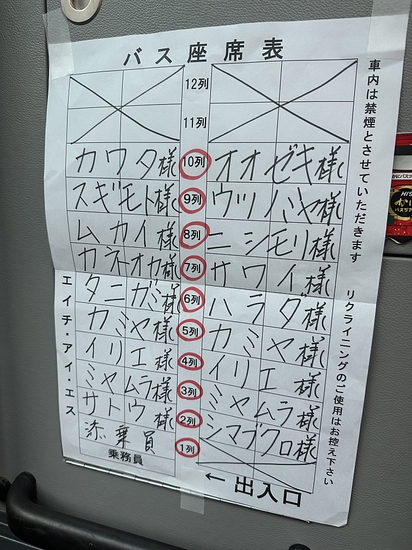 バス座席表
12列
11列
カワタ様 10列 オオゼキ様
スギモト様 9列 ウツノミヤ様
ムカイ様 8列 ニシモリ様
カネオカ様 7列 サワイ様
タニガミ様 6列 ハラダ様
カミヤ様 5列 カミヤ様
イリエ様 4列 イリエ様
ミヤムラ様 3列 ミヤムラ様
サトウ様 2列 シマブクロ様
添乗員 1列
乗務員
← 出入口
車内は禁煙とさせていただきます
リクライニングのご使用はお控え下さい
エイチ・アイ・エス